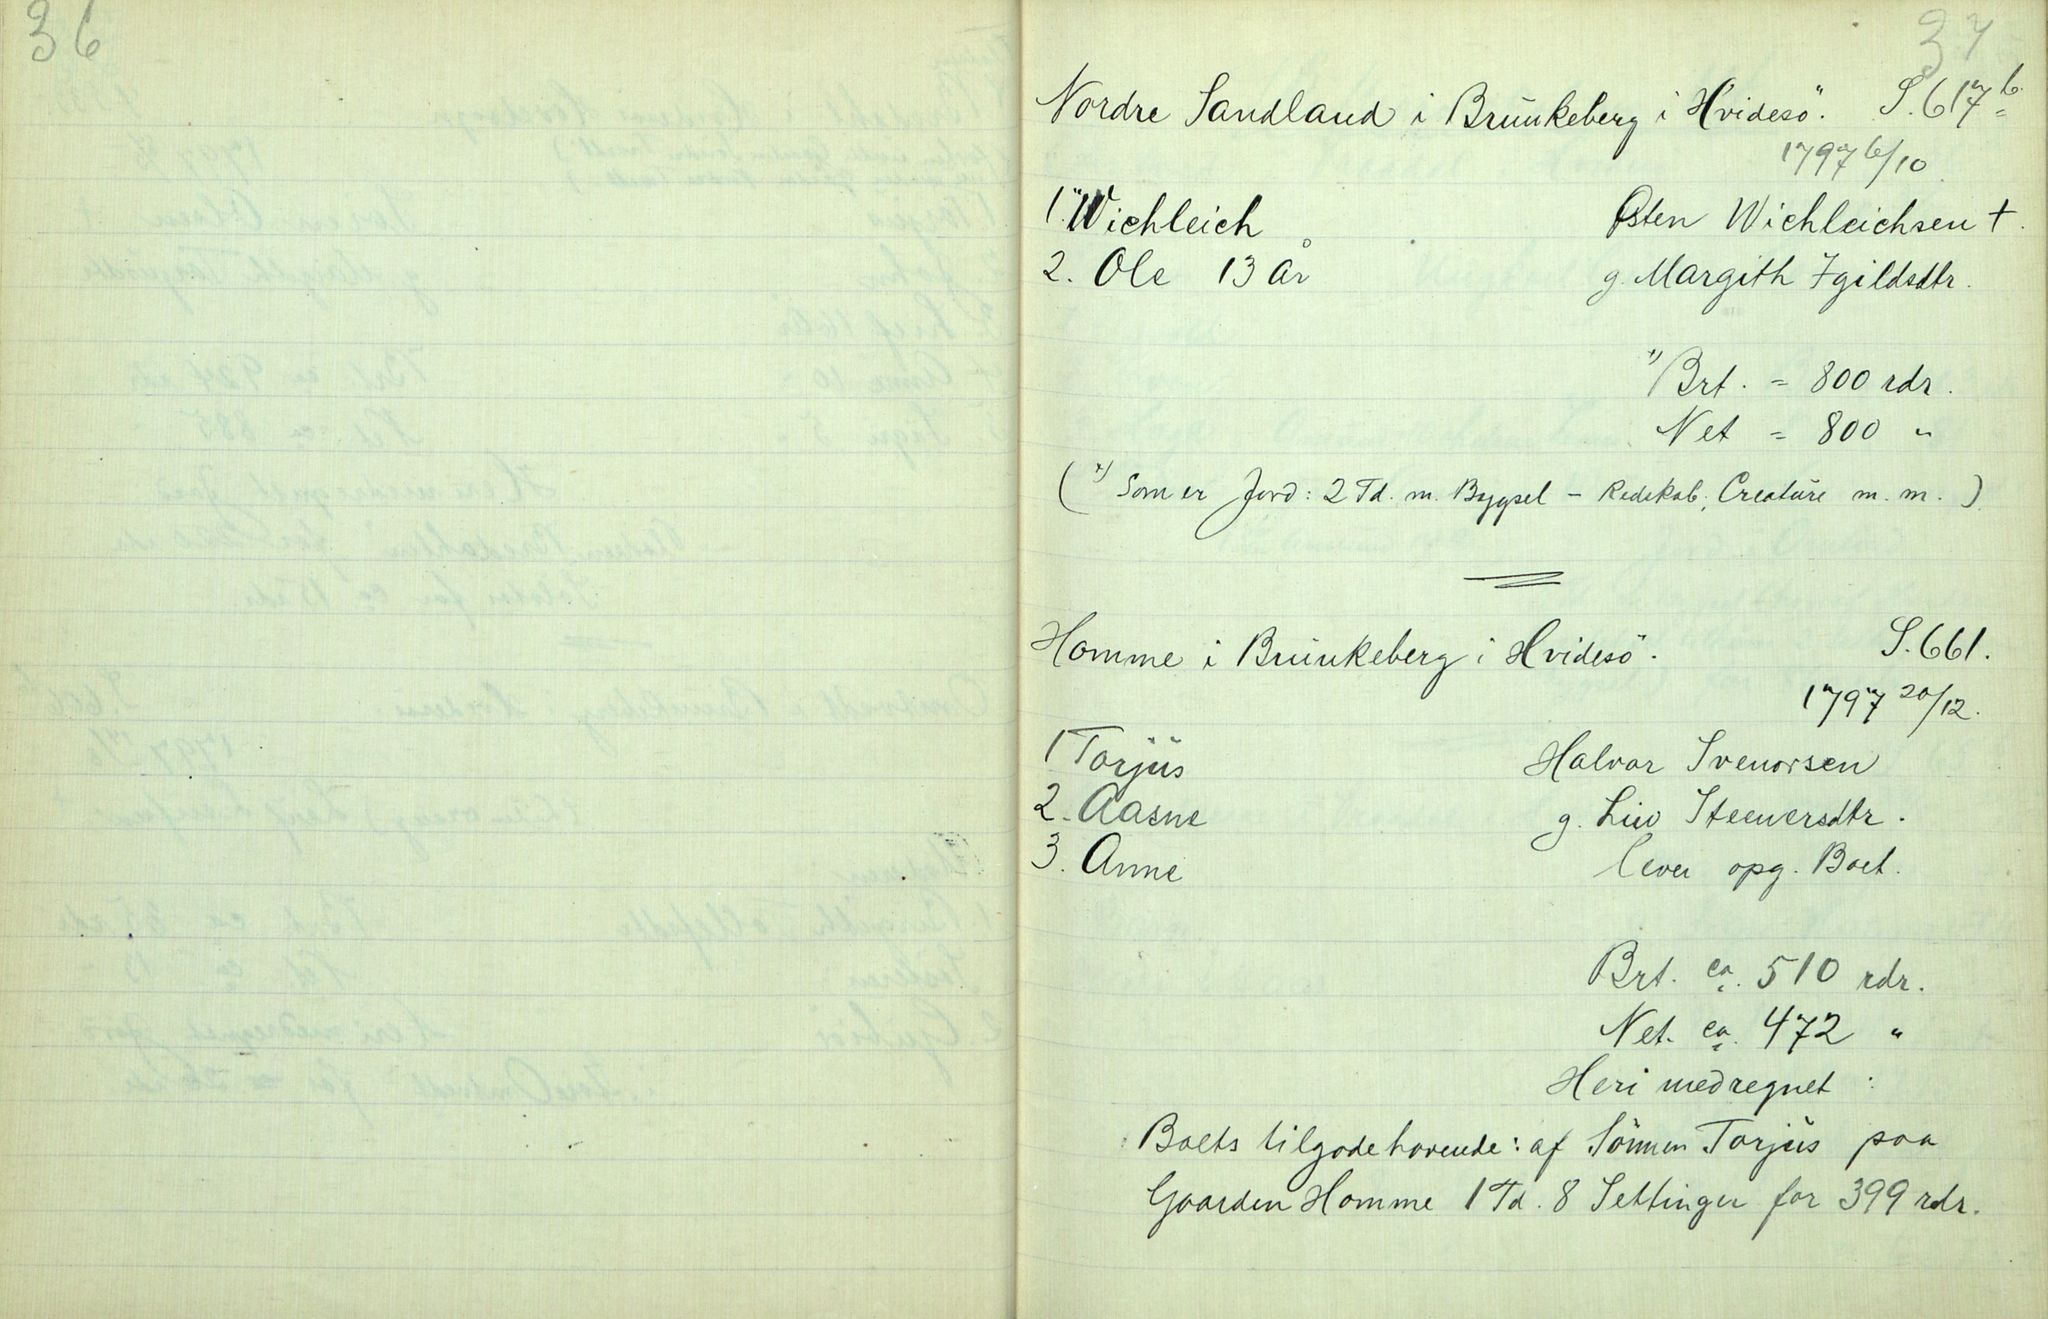 36
37
Nordre Sandland i Brunkeberg i Hvidesö. S. 617 b.
1797 6/10
1. Wichleich Østen Wichleichsen †.
2. Ole 13 År g. Margith Igildsdtr.
x) Brt. = 800 rdr.
Net = 800 "
( x) Som er Jord: 2 Td. m. Bygsel – Redskab, Creature m. m. )
Homme i Brunkeberg i Hvidesö. S. 661.
1797 20/12.
1 Torjus Halvor Svenorsen
2. Aasne g. Liv Steenersdtr.
3. Anne lever opg. Boet.
Brt. ca. 510 rdr.
Net. ca. 472 "
Heri medregnet :
Boets tilgodehavende: af Sönnen Torjus paa
Gaarden Homme 1 Td. 8 Settinger for 399 rdr.